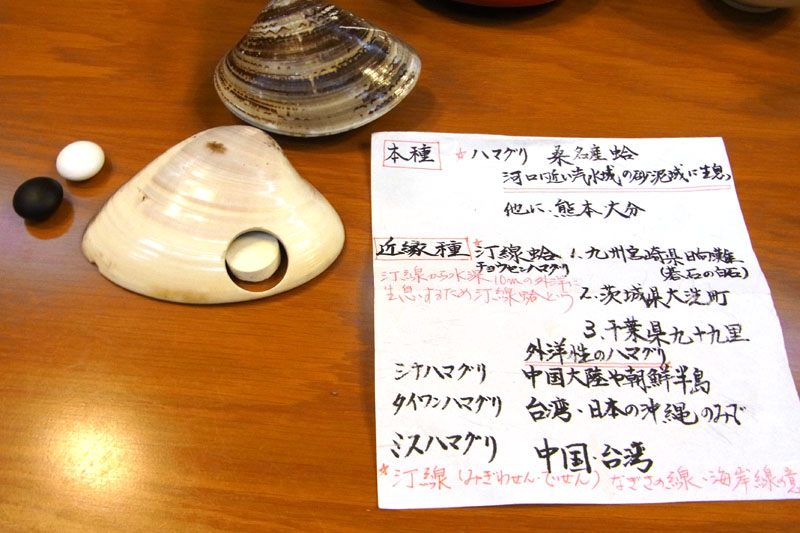 本種 ☆ハマグリ 桑名産蛤
河口に近い汽水域の砂泥域に生息
他に、熊本大分
近縁種 ☆汀線蛤 1.九州宮崎県日向灘
チョウセンハマグリ (碁石の白石)
汀線から水深10mの外洋に
生息するため汀線蛤という
2.茨城県大洗町
3.千葉県九十九里
外洋性のハマグリ
シナハマグリ 中国大陸や朝鮮半島
タイワンハマグリ 台湾・日本の沖縄のみで
ミスハマグリ 中国・台湾
☆汀線(みぎわせん・ていせん)なぎさの線、海岸線の意